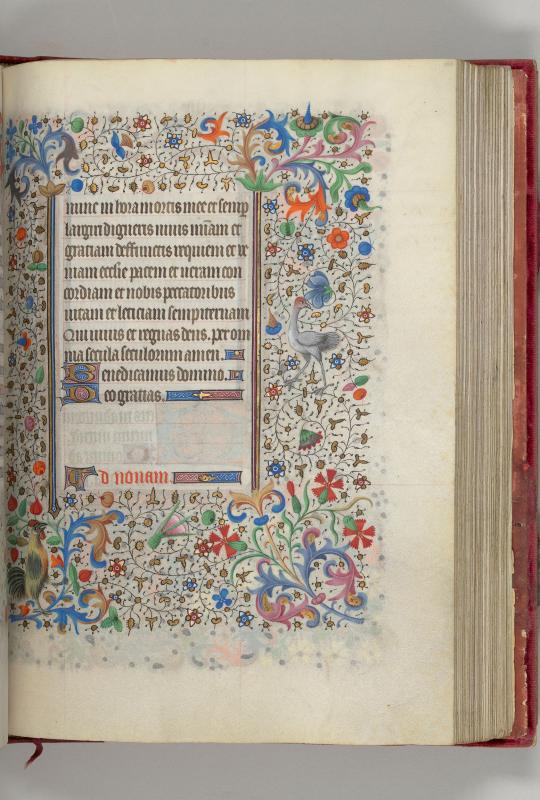 nunc in hora mortis mee et semp
largiri digneris uiuis uniam et
graciam deffunctis requiem et ve
niam ecclie pacem et ueram con
cordiam et nobis peccatoribus
uitam et leticiam sempiternam
Qui uiuis et regnas deus. per om
nia secula seculorum amen.
Benedicamus domino.
Deo gratias.
Ad nonam.